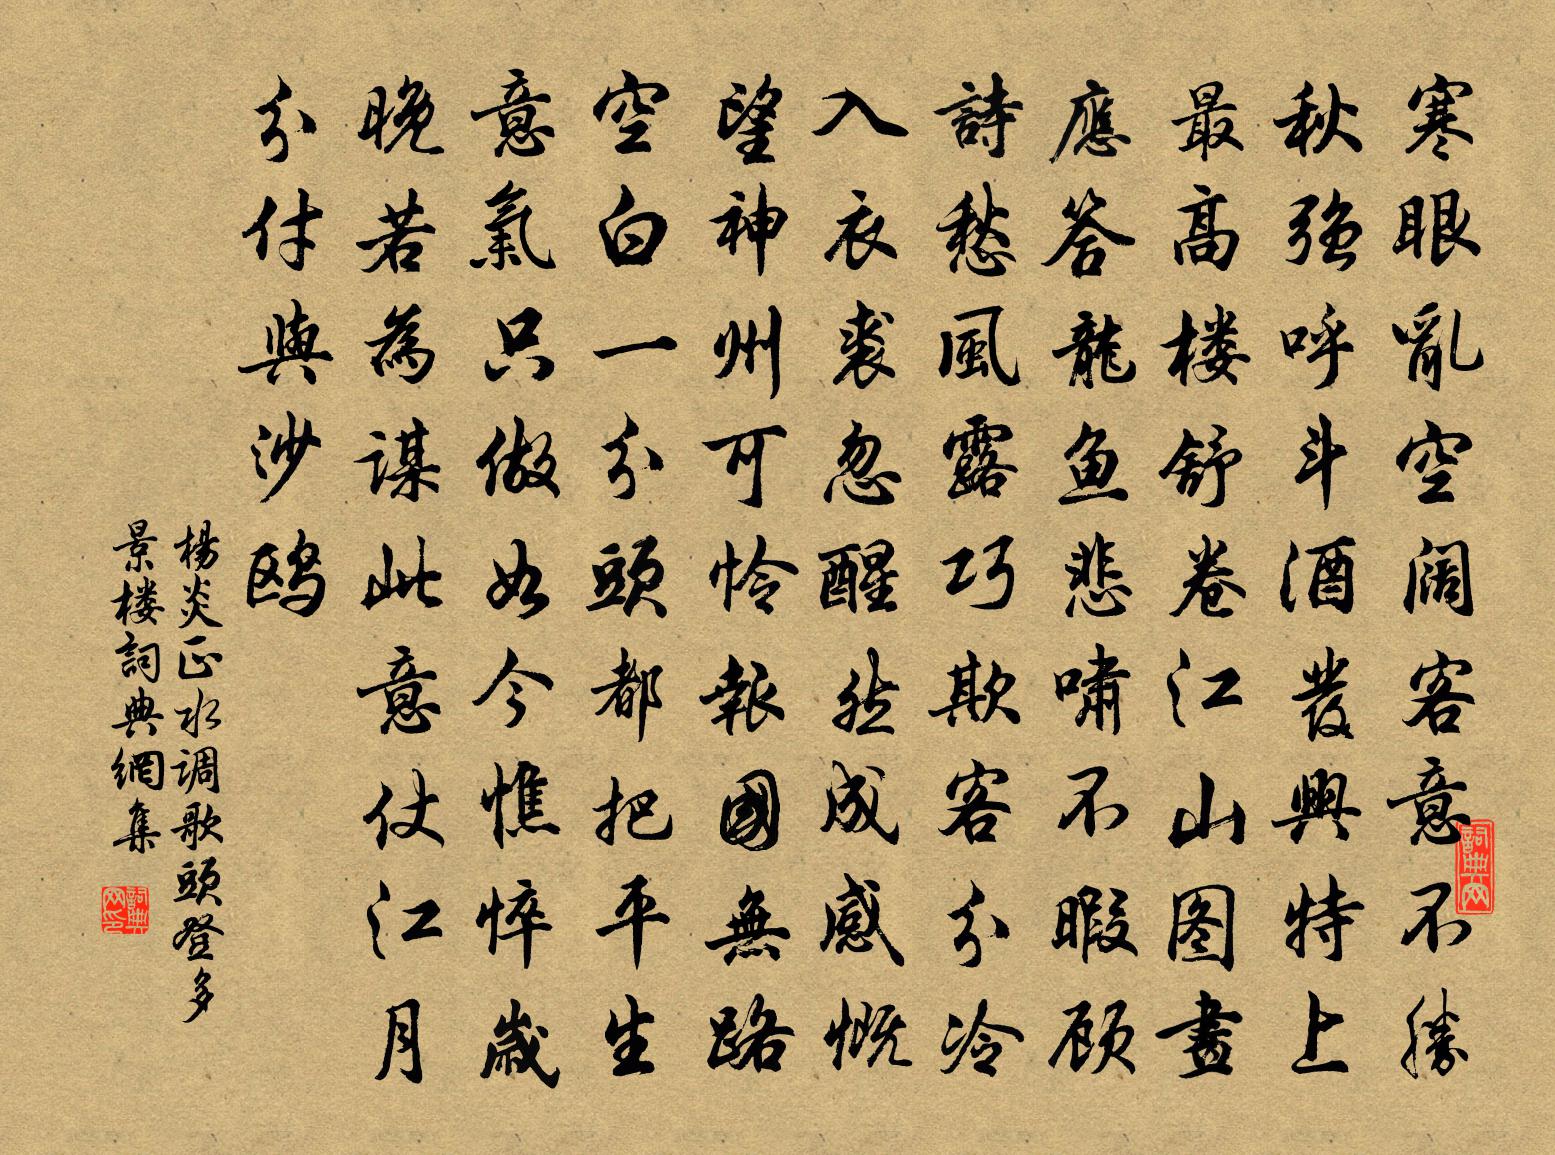 寒眼亂空闊客意不勝
秋強呼斗酒發興特上
最高楼舒卷江山图畫
應答龍鱼悲嘯不暇顾
詩愁風露巧欺客分冷
入衣裘忽醒然成感慨
望神州可怜報國無路
空白一分頭都把平生
意氣只做如今憔悴歲
晚若為謀此意仗江月
分付與沙鸥
楊炎正水调歌頭登多
景楼詞典網集
詞典网
詞典网印